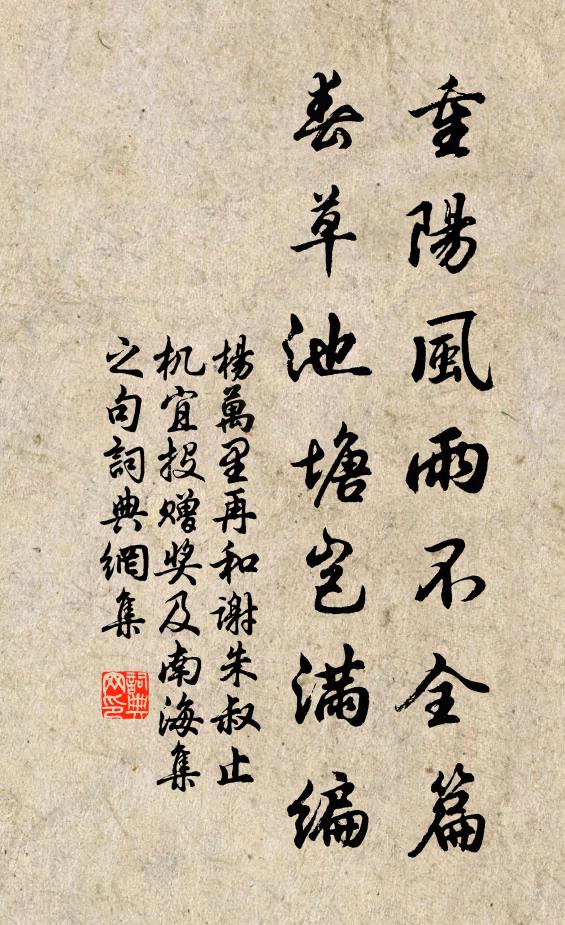 重陽風雨不全篇
春草池塘豈滿編
楊萬里再和謝朱叔止
机宜投赠奖及南海集
之句詞典網集
詞典
网印